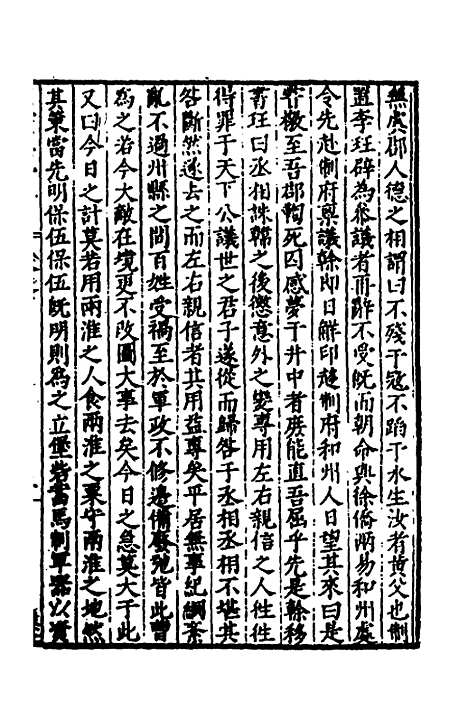 無虞郡人德之相謂曰不殘于寇不蹈于水生汝者黄父也制
置李珏辟為參議者再辭不受既而朝命與徐僑兩易和州處
令先赴制府稟議榦即日觧印趨制府和州人日望其來曰是
嘗檄至吾郡鞫死囚感夢于井中者庶能直吾屈乎先是榦移
書珏曰丞相誅韓之後懲意外之變專用左右親信之人徃徃
得罪于天下公議世之君子遂從而歸咎于丞相丞相不堪其
咎斷然逐去之而左右親信者其用益專矣平居無事紀綱紊
亂不過州縣之間百姓受禍至於軍政不修邊備廢弛皆此曹
為之若今大敵在境更不改圖大事去矣今日之急莫大于此
又曰今日之計莫若用兩淮之人食兩淮之粟守兩淮之地然
其策當先明保伍保伍既明則為之立堡砦蓄馬制軍器以資